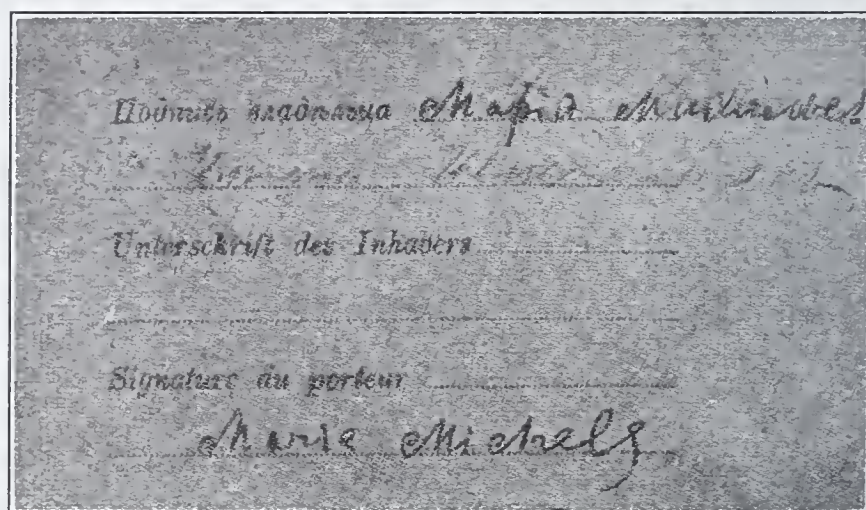 Подпись владѣльца Марія
Unterschrift des Inhabers
Signature du porteur
Marie Michels